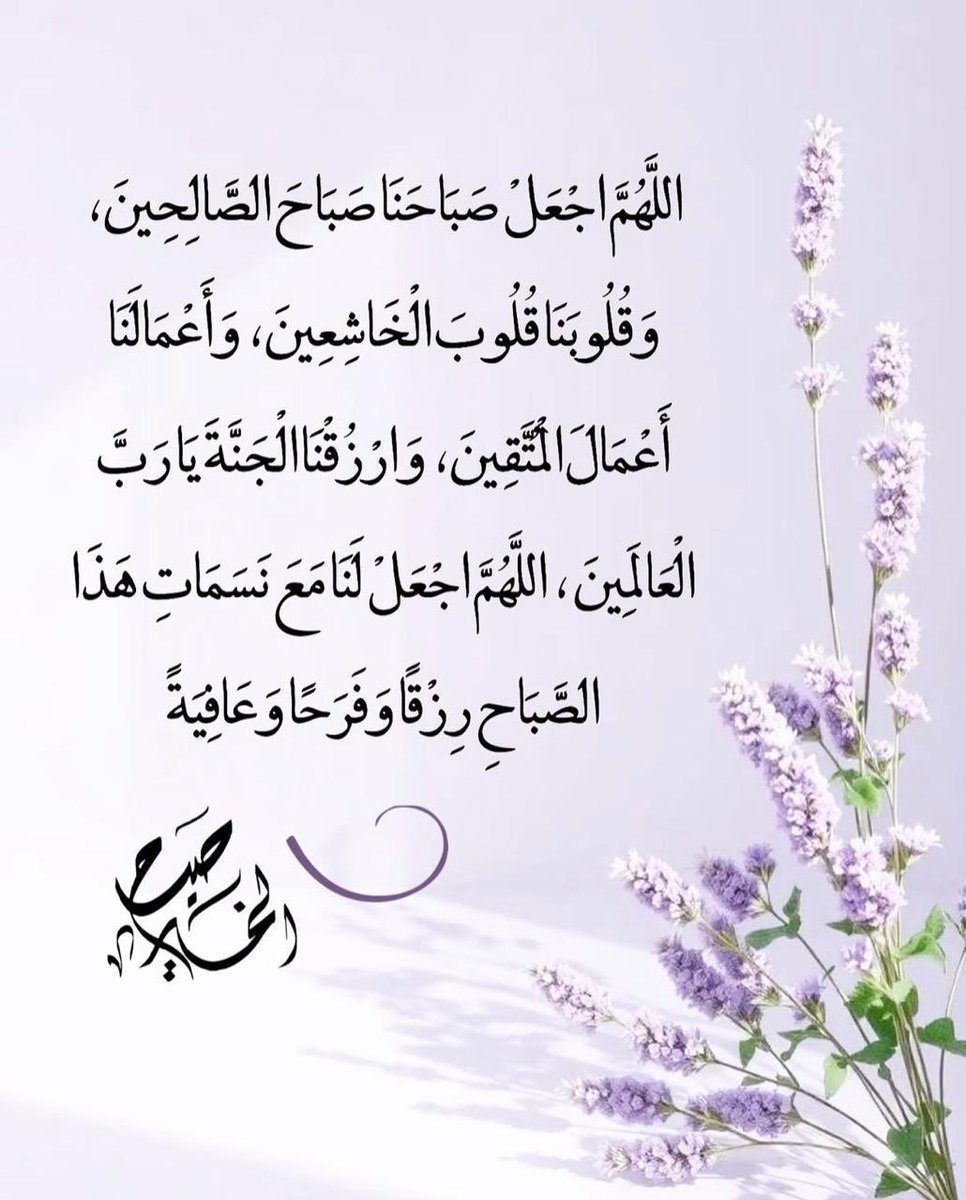 اللَّهُمَّ اجْعَلْ صَبَاحَنَا صَبَاحَ الصَّالِحِينَ،
وَقُلُوبَنَا قُلُوبَ الْخَاشِعِينَ، وَأَعْمَالَنَا
أَعْمَالَ الْمُتَّقِينَ، وَارْزُقْنَا الْجَنَّةَ يَا رَبَّ
الْعَالَمِينَ، اللَّهُمَّ اجْعَلْ لَنَا مَعَ نَسَمَاتِ هَذَا
الصَّبَاحِ رِزْقًا وَفَرَحًا وَعَافِيَةً
صباح
الخير